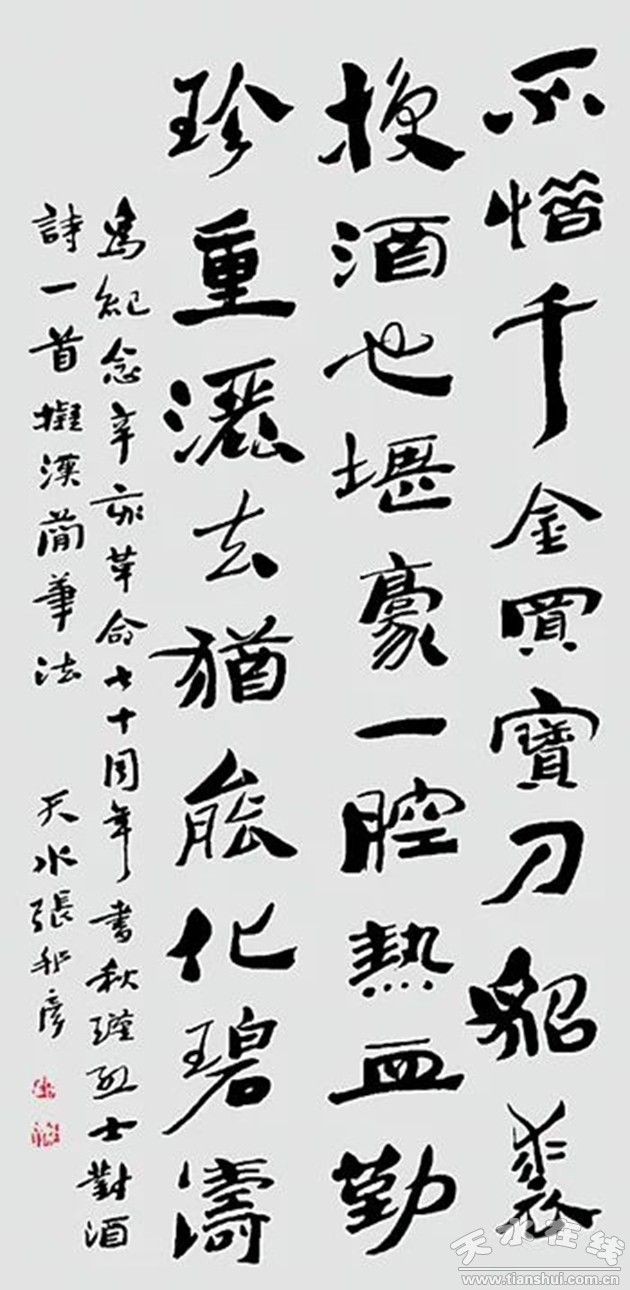 不惜千金買寶刀貂裘
換酒也堪豪一腔熱血勤
珍重灑去猶能化碧濤
為紀念辛亥革命七十周年書秋瑾烈士對酒
詩一首擬漢簡筆法 天水張邦彥
天水在线
www.tianshui.com.cn